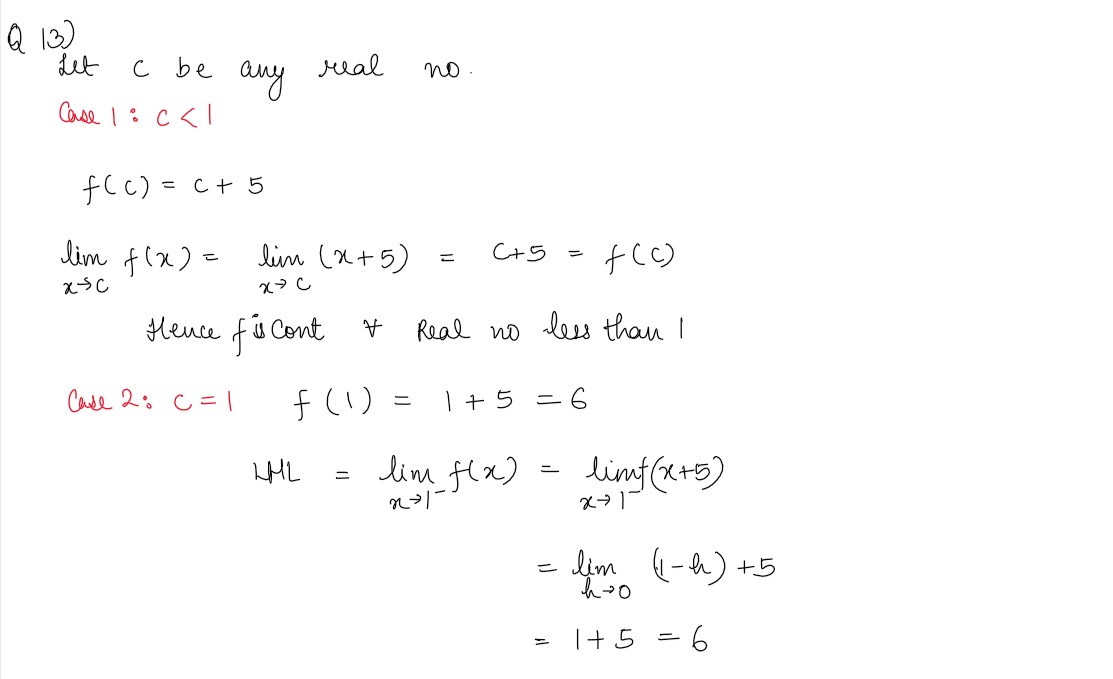 Q 13)
Let c be any real no.
Case 1: c < 1
f(c) = c + 5
lim x→c f(x) = lim x→c (x+5) = c+5 = f(c)
Hence f is Cont ∀ Real no less than 1
Case 2: c = 1 f(1) = 1 + 5 = 6
LHL = lim x→1⁻ f(x) = lim x→1⁻ f(x+5)
= lim h→0 (1-h) +5
= 1+5 = 6